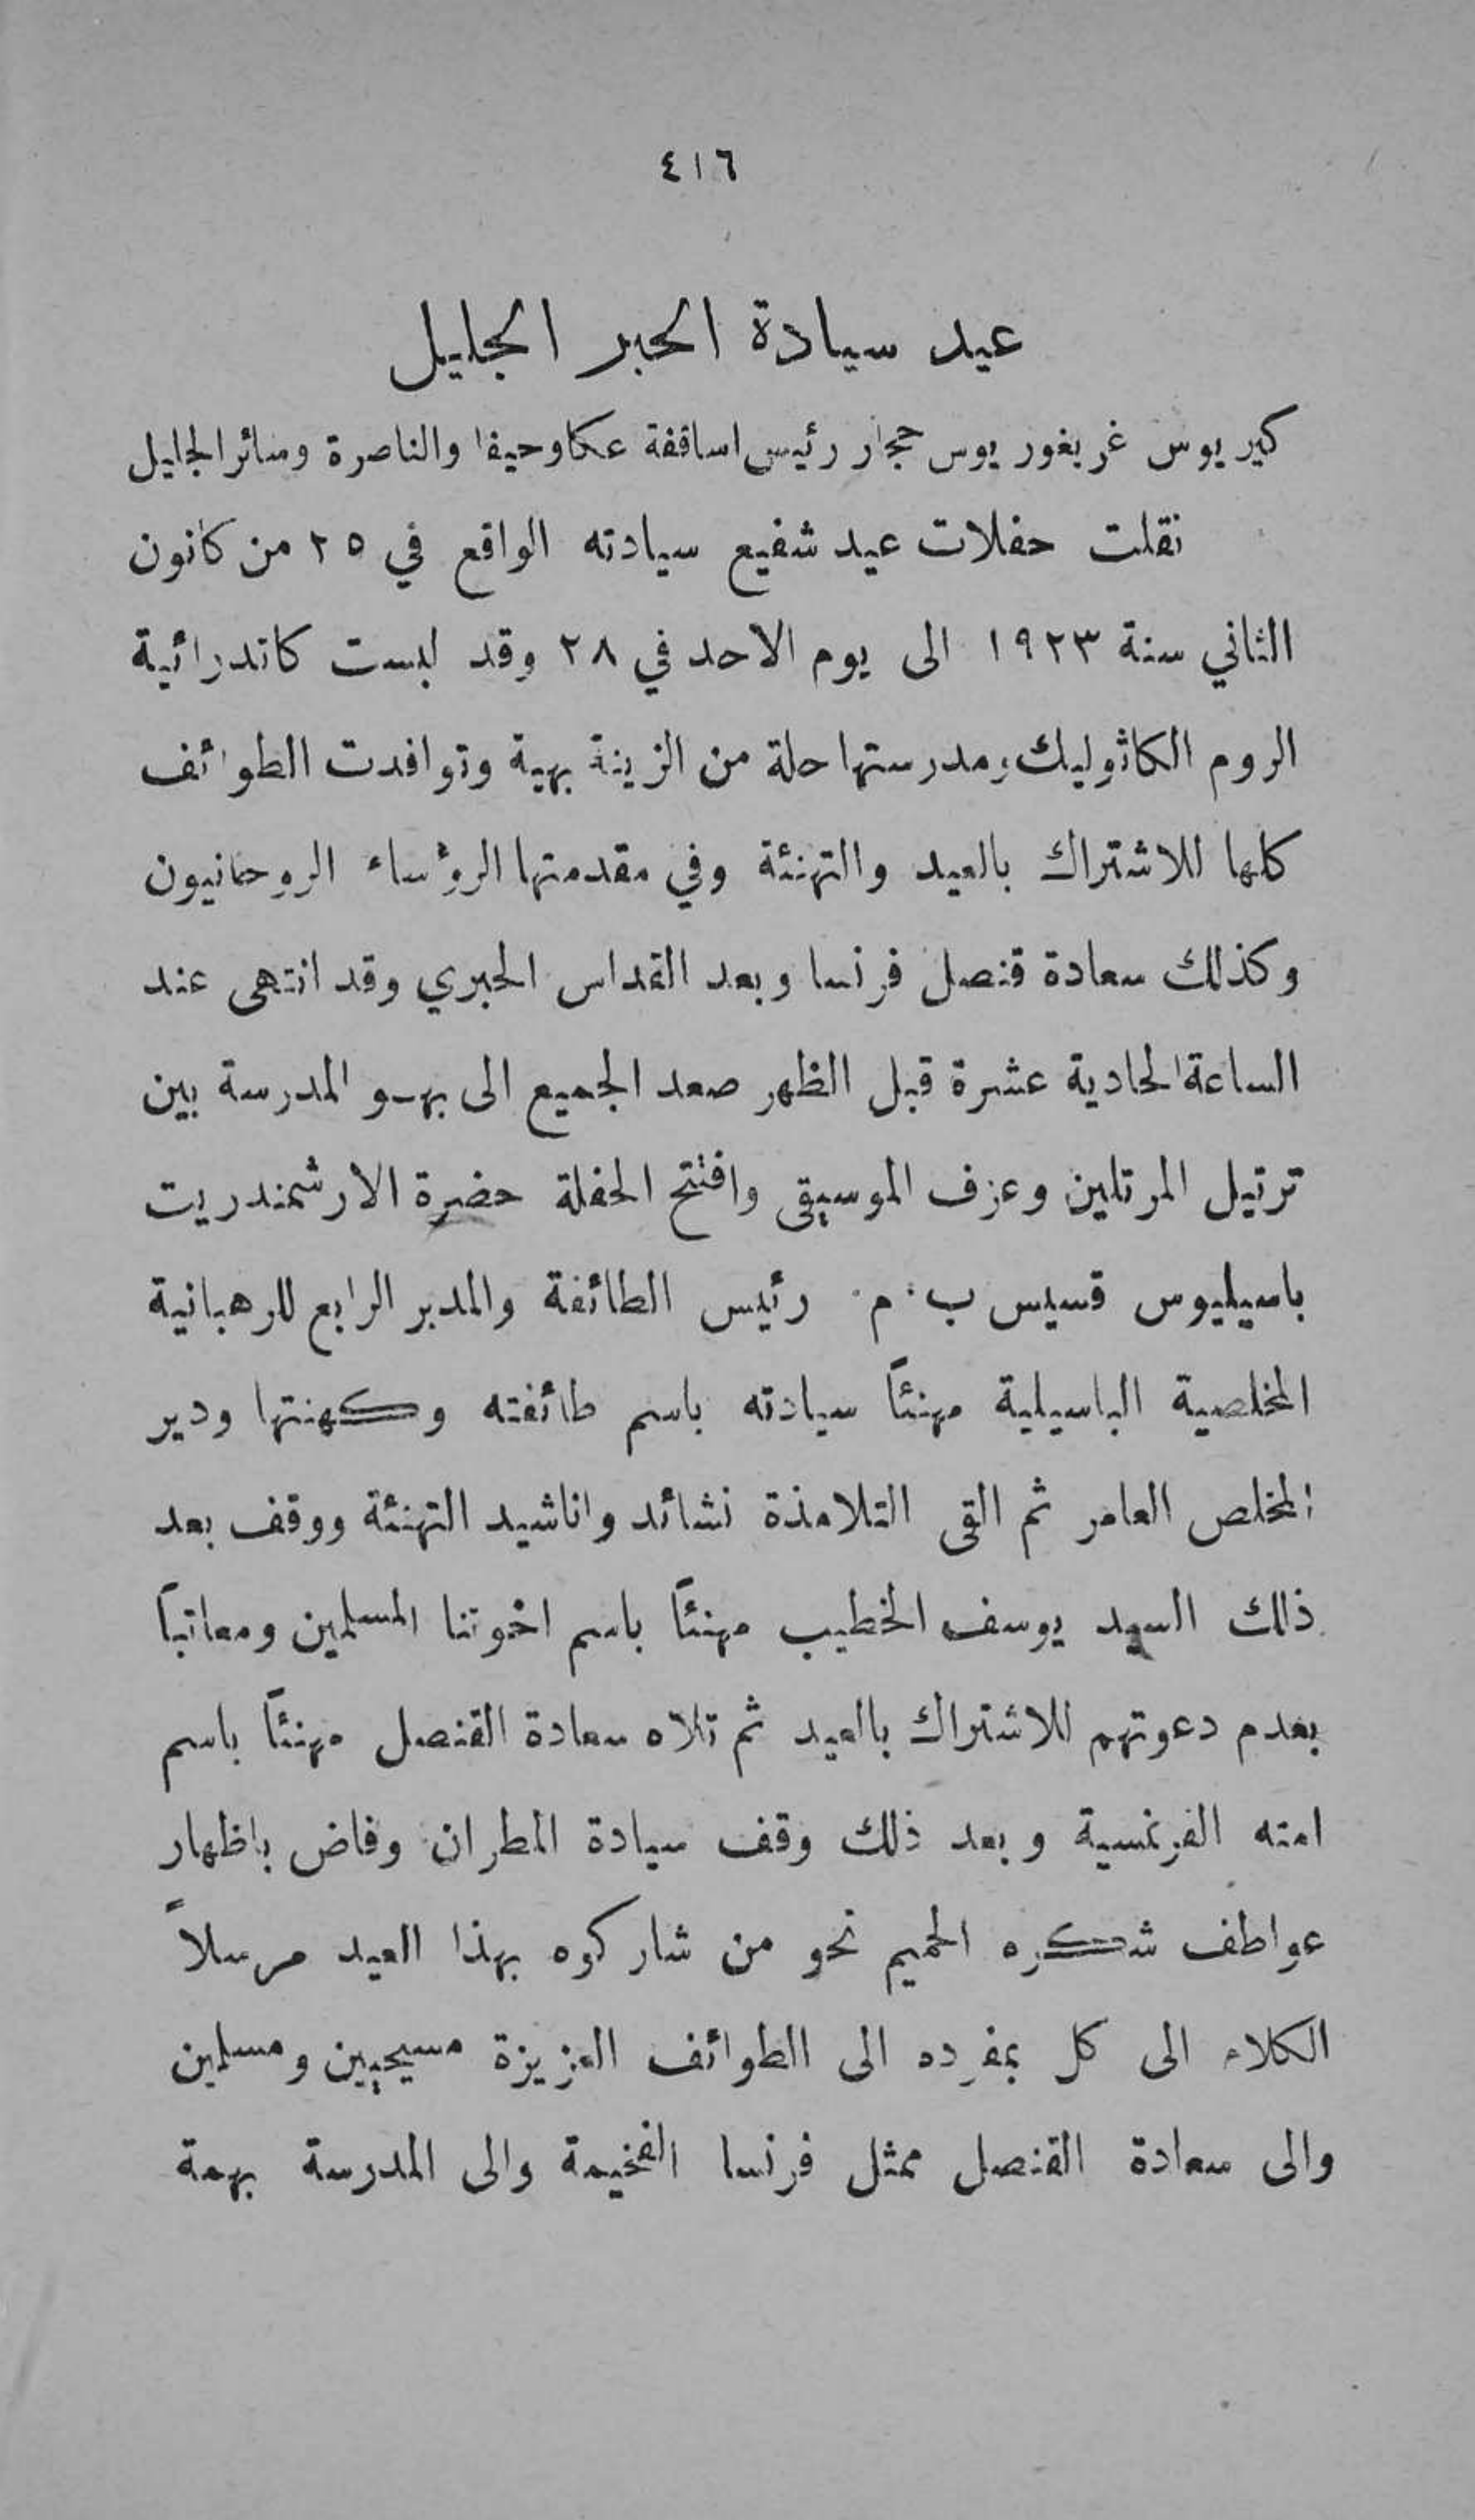 ٤١٦
عيد سيادة الحبر الجليل
كيريوس غريغوريوس حجار رئيس اساقفة عكا وحيفا والناصرة وسائر الجليل
نقلت حفلات عيد شفيع سيادته الواقع في ٢٥ من كانون
الثاني سنة ١٩٢٣ الى يوم الاحد في ٢٨ وقد لبست كاتدرائية
الروم الكاثوليك ومدرستها حلة من الزينة بهية وتوافدت الطوائف
كلها للاشتراك بالعيد والتهنئة وفي مقدمتها الرؤساء الروحانيون
وكذلك سعادة قنصل فرنسا وبعد القداس الحبري وقد انتهى عند
الساعة الحادية عشرة قبل الظهر صعد الجميع الى بهو المدرسة بين
ترتيل المرتلين وعزف الموسيقى وافتتح الحفلة حضرة الارشمندريت
باسيليوس قسيس ب. م. رئيس الطائفة والمدبر الرابع للرهبانية
المخلصية الباسيلية مهنئاً سيادته باسم طائفته وكهنتها ودير
المخلص العامر ثم القى التلامذة نشائد واناشيد التهنئة ووقف بعد
ذلك السيد يوسف الخطيب مهنئاً باسم اخوتنا المسلمين ومعاتباً
بعدم دعوتهم للاشتراك بالعيد ثم تلاه سعادة القنصل مهنئاً باسم
امته الفرنسية وبعد ذلك وقف سيادة المطران وفاض باظهار
عواطف شكره الحميم نحو من شاركوه بهذا العيد مرسلاً
الكلام الى كل بمفرده الى الطوائف العزيزة مسيحيين ومسلمين
والى سعادة القنصل ممثل فرنسا الفخيمة والى المدرسة بهمة